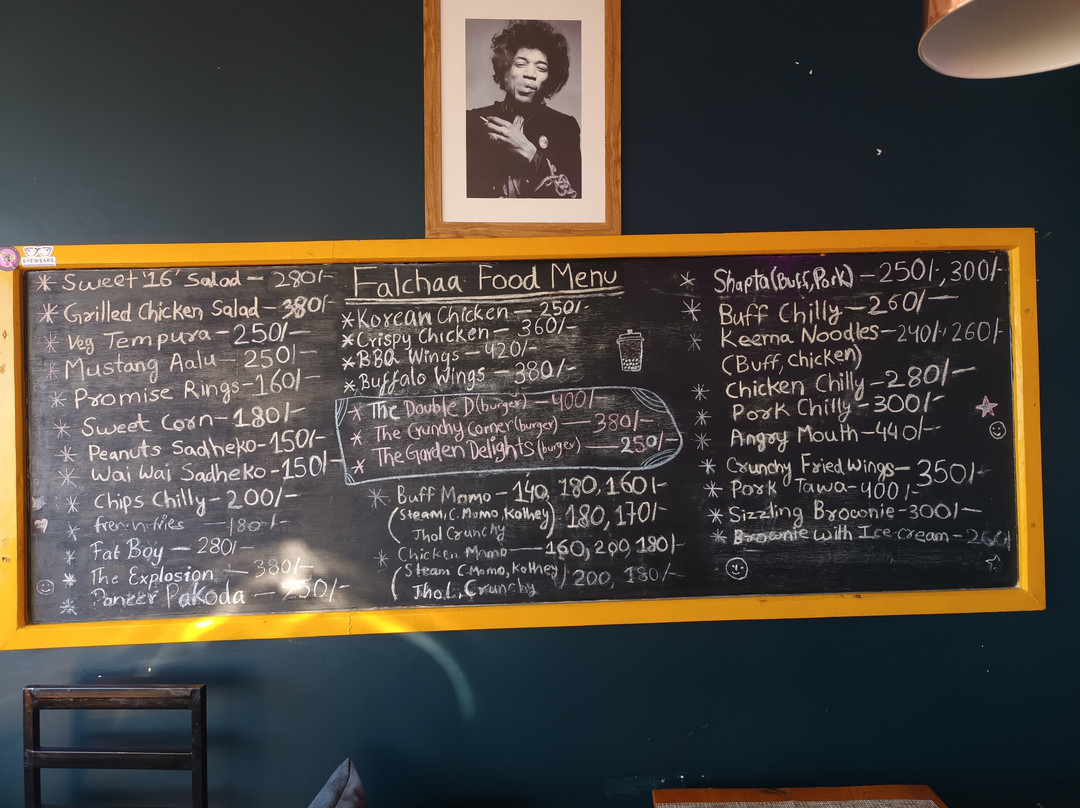 EYEWEARS
* Sweet '16' Salad — 280/-
* Grilled Chicken Salad — 380/-
* Veg Tempura — 250/-
* Mustang Aalu — 250/-
* Promise Rings - 160/-
* Sweet Corn - 180/-
* Peanuts Sadheko - 150/-
* Wai Wai Sadheko - 150/-
* Chips Chilly - 200/-
* french fries — 180/-
* Fat Boy — 280/-
* The Explosion — 380/-
* Paneer Pakoda — 250/-
Falchaa Food Menu
* Korean Chicken — 250/-
* Crispy Chicken — 360/-
* BBQ Wings — 420/-
* Buffalo Wings — 380/-
* The Double D (burger) — 400/-
* The Crunchy Corner (burger) — 380/-
* The Garden Delights (burger) — 250/-
* Buff Momo — 140, 180, 160/-
(Steam, C.Momo, Kothey) 180, 170/-
Jhol Crunchy
* Chicken Momo — 160, 200, 180/-
(Steam C.Momo, Kothey) 200, 180/-
Jhol, Crunchy
* Shapta (Buff, Pork) — 250/-, 300/-
* Buff Chilly — 260/-
* Keema Noodles — 240/- 260/-
(Buff, Chicken)
* Chicken Chilly — 280/-
* Pork Chilly — 300/-
* Angry Mouth — 440/-
* Crunchy Fried Wings — 350/-
* Pork Tawa — 400/-
* Sizzling Brownie — 300/-
* Brownie with Ice-cream —